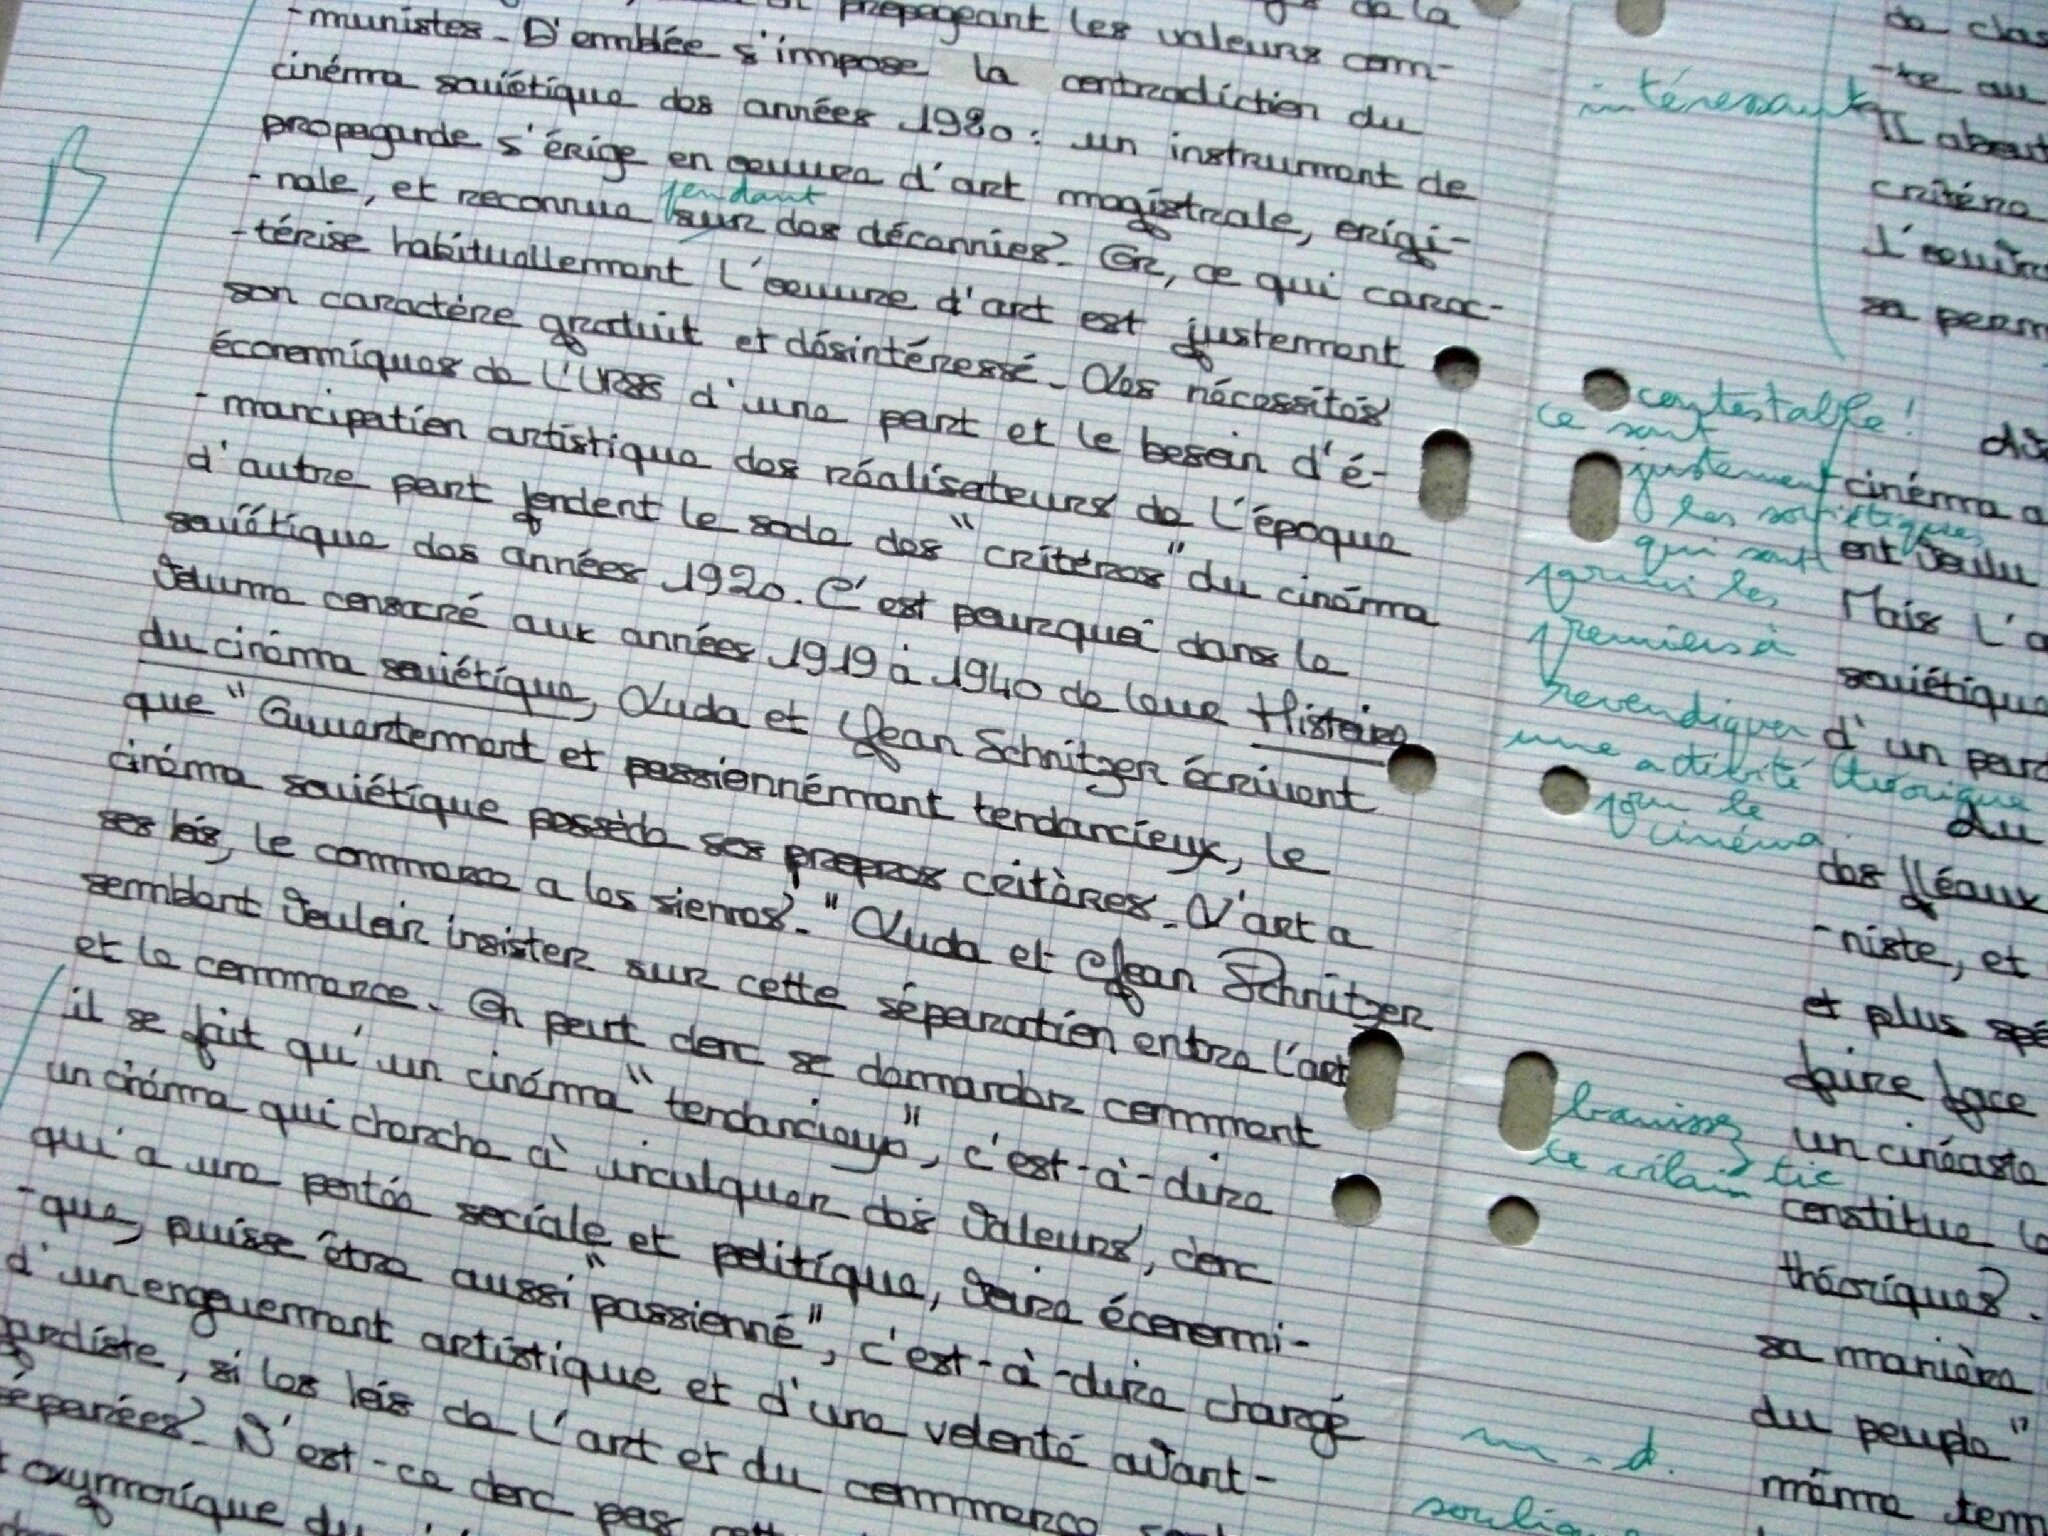 propageant les valeurs com-
-munistes. D'emblée s'impose la contradiction du
cinéma soviétique des années 1920 : un instrument de
propagande s'érige en oeuvre d'art magistrale, origi-
-nale, et reconnue sur des décennies. Or, ce qui carac-
pendant
-térise habituellement l'oeuvre d'art est justement
son caractère gratuit et désintéressé. Les nécessités
économiques de l'URSS d'une part et le besoin d'é-
-mancipation artistique des réalisateurs de l'époque
d'autre part fondent le socle des "critères" du cinéma
soviétique des années 1920. C'est pourquoi dans le
volume consacré aux années 1919 à 1940 de leur Histoire
du cinéma soviétique, Luda et Jean Schnitzer écrivent
que "Ouvertement et passionnément tendancieux, le
cinéma soviétique possède ses propres critères. L'art a
ses lois, le commerce a les siennes." Luda et Jean Schnitzer
semblent vouloir insister sur cette séparation entre l'art
et le commerce. On peut donc se demander comment
il se fait qu'un cinéma "tendancieux", c'est-à-dire
un cinéma qui cherche à inculquer des valeurs, donc
qui a une portée sociale et politique, voire économi-
-que, puisse être aussi "passionné", c'est-à-dire chargé
d'un engouement artistique et d'une volonté avant-
gardiste, si les lois de l'art et du commerce sont
séparées. N'est-ce donc pas cette
oxymorique du
B
intéressant
contestable !
ce sont
justement
les soviétiques
qui sont
parmi les
premiers à
revendiquer
une activité théorique
pour le
cinéma.
bannissez
ce vilain tic
m.d.
de clas
-te au
Il about
critère
sa perm
cinéma a
ont voulu
Mais l'a
soviétique
d'un part
du
des fléaux
-niste, et
et plus spé
faire face
un cinéaste
constitue le
théoriques.
sa manière
du peuple"
même tem